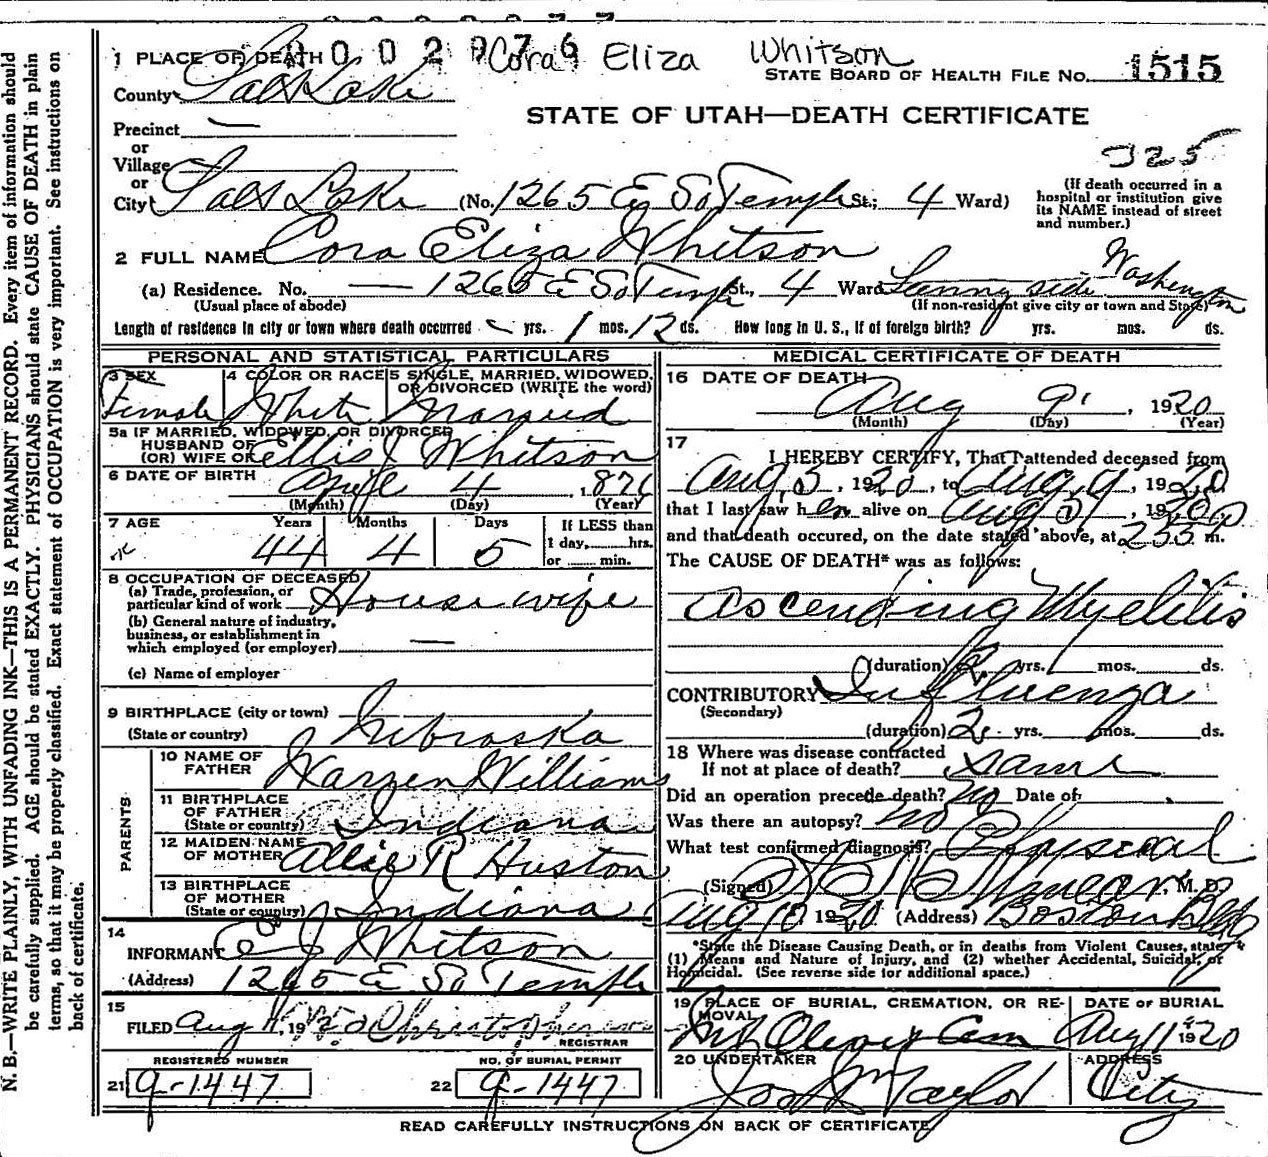 0002976 Cora Eliza Whitson
STATE BOARD OF HEALTH FILE No. 1515
1 PLACE OF DEATH
County Salt Lake
STATE OF UTAH—DEATH CERTIFICATE
Precinct —
or
Village
or
325
City Salt Lake (No. 1265 E So Temple St.; 4 Ward)
(If death occurred in a hospital or institution give its NAME instead of street and number.)
2 FULL NAME Cora Eliza Whitson
(a) Residence. No. — 1265 E So Temple St., 4 Ward Sunny side Washington
(Usual place of abode) (If non-resident give city or town and State)
Length of residence in city or town where death occurred yrs. 1 mos. 12 ds. How long in U. S., if of foreign birth? yrs. mos. ds.
PERSONAL AND STATISTICAL PARTICULARS
3 SEX 4 COLOR OR RACE 5 SINGLE, MARRIED, WIDOWED, OR DIVORCED (WRITE the word)
Female White Married
5a IF MARRIED, WIDOWED, OR DIVORCED
HUSBAND OF
(OR) WIFE OF Ellis J Whitson
6 DATE OF BIRTH April 4, 1876
(Month) (Day) (Year)
7 AGE Years Months Days If LESS than
44 4 5 1 day, hrs.
or min.
8 OCCUPATION OF DECEASED
(a) Trade, profession, or particular kind of work Housewife
(b) General nature of industry, business, or establishment in which employed (or employer) —
(c) Name of employer
9 BIRTHPLACE (city or town)
(State or country) Nebraska
PARENTS
10 NAME OF FATHER Warren Williams
11 BIRTHPLACE OF FATHER (State or country) Indiana
12 MAIDEN NAME OF MOTHER Allie R Huston
13 BIRTHPLACE OF MOTHER (State or country) Indiana
14
INFORMANT E J Whitson
(Address) 1265 E So Temple
15
FILED Aug 11, 1920
REGISTRAR
REGISTERED NUMBER NO. OF BURIAL PERMIT
21 9-1447 22 9-1447
MEDICAL CERTIFICATE OF DEATH
16 DATE OF DEATH
Aug 9, 1920
(Month) (Day) (Year)
17
I HEREBY CERTIFY, That I attended deceased from
Aug 5, 1920, to Aug 9, 1920
that I last saw her alive on Aug 9, 1920
and that death occured, on the date stated above, at 235 P m.
The CAUSE OF DEATH* was as follows:
Ascending Myelitis
(duration) 2 yrs. mos. ds.
CONTRIBUTORY Influenza
(Secondary)
(duration) 2 yrs. mos. ds.
18 Where was disease contracted
If not at place of death? same
Did an operation precede death? no Date of
Was there an autopsy? no
What test confirmed diagnosis? Physical
(Signed) M. D.
Aug 10 1920 (Address) Boston Bldg
*State the Disease Causing Death, or in deaths from Violent Causes, state (1) Means and Nature of Injury, and (2) whether Accidental, Suicidal, or Homicidal. (See reverse side for additional space.)
19 PLACE OF BURIAL, CREMATION, OR REMOVAL DATE OF BURIAL
Mt Olivet Cem Aug 11 1920
20 UNDERTAKER ADDRESS
Jos Wm Taylor City
READ CAREFULLY INSTRUCTIONS ON BACK OF CERTIFICATE
N. B.—WRITE PLAINLY, WITH UNFADING INK—THIS IS A PERMANENT RECORD. Every item of information should
be carefully supplied. AGE should be stated EXACTLY. PHYSICIANS should state CAUSE OF DEATH in plain
terms, so that it may be properly classified. Exact statement of OCCUPATION is very important. See instructions on
back of certificate.